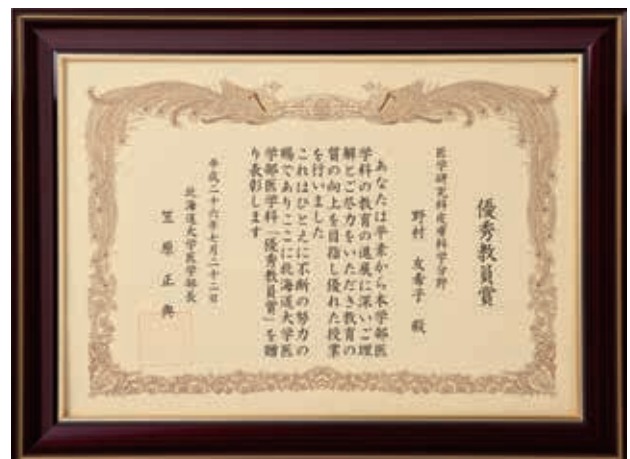 優秀教員賞
医学研究科皮膚科学分野
野村 友希子 殿
あなたは平素から本学部医
学科の教育の進展に深いご理
解とご尽力をいただき教育の
質の向上を目指し優れた授業
を行いました
これはひとえに不断の努力の
賜でありここに北海道大学医
学部医学科「優秀教員賞」を贈
り表彰します
平成二十六年七月二十二日
北海道大学医学部長
笠原正典